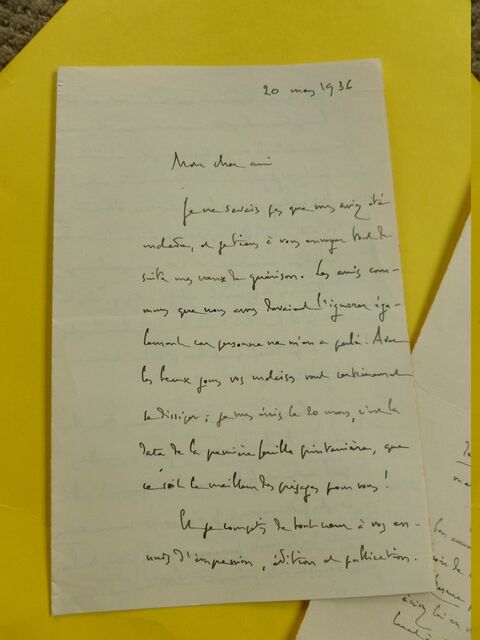 20 mars 1936
Mon cher ami
Je ne savais pas que vous aviez été
malade, et je tiens à vous envoyer tout de
suite mes vœux de guérison. Les amis com-
muns que nous avons devaient l'ignorer éga-
lement car personne ne m'en a parlé. Avec
les beaux jours vos malaises vont certainement
se dissiper ; je vous écris le 20 mars, c'est la
date de la première feuille printanière, que
ce soit le meilleur des présages pour vous !
Et je compatis de tout cœur à vos en-
nuis d'impression, édition et publication.